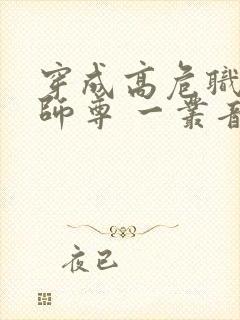 穿成高危職
師尊 一叢音
夜已